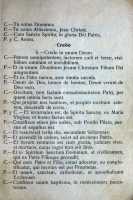 P.—Tu solus Dominus.
C.—Tu solus Altissimus, Jesu Christe.
P.—Cum Sancto Spiritu, in gloria Dei Patris.
P. y C. Amen.
Credo
S.—Credo in unum Deum.
C.—Patrem omnipotentem, factorem caeli et terrae, visi-
bilium omnium et invisibilium.
P.—Et in unum Dominum Jesum Christum Filium Dei
unigenitum.
C.—Et ex Patre natum, ante omnia saecula.
P.—Deum de Deo, lumen de lumine, Deum verum de
Deo vero.
C.—Genitum, non factum, consubstantialem Patri, per
quem omnia facta sunt.
P.—Qui propter nos homines, et propter nostram salu-
tem, descendit de caelis.
C.—Et incarnatus est de Spiritu Sancto, ex Maria
Virgine, et homo factus est.
P.—Crucifixus etiam pro nobis, sub Pontio Pilato, pas-
sus, et sepultus est.
C.—Et resurrexit tertia die, secundum Scripturas.
P.—Et ascendit in caelum, sedet ad dexteram Patris.
C.—Et iterum venturus est cum gloria, judicare vivos
et mortuos, cujus regni non erit finis.
P.—Et in Spiritum Sanctum Dominum, et vivificantem,
qui ex Patre Filioque procedit.
C.—Qui cum Patre et Filio, simul adoratur, et conglo-
rificatur, qui locutus est per Prophetas.
P.—Et unam, sanctam, catholicam et apostolicam Ec-
clesiam.
C.—Confiteor unum baptisma, in remissionem pecca-
torum.